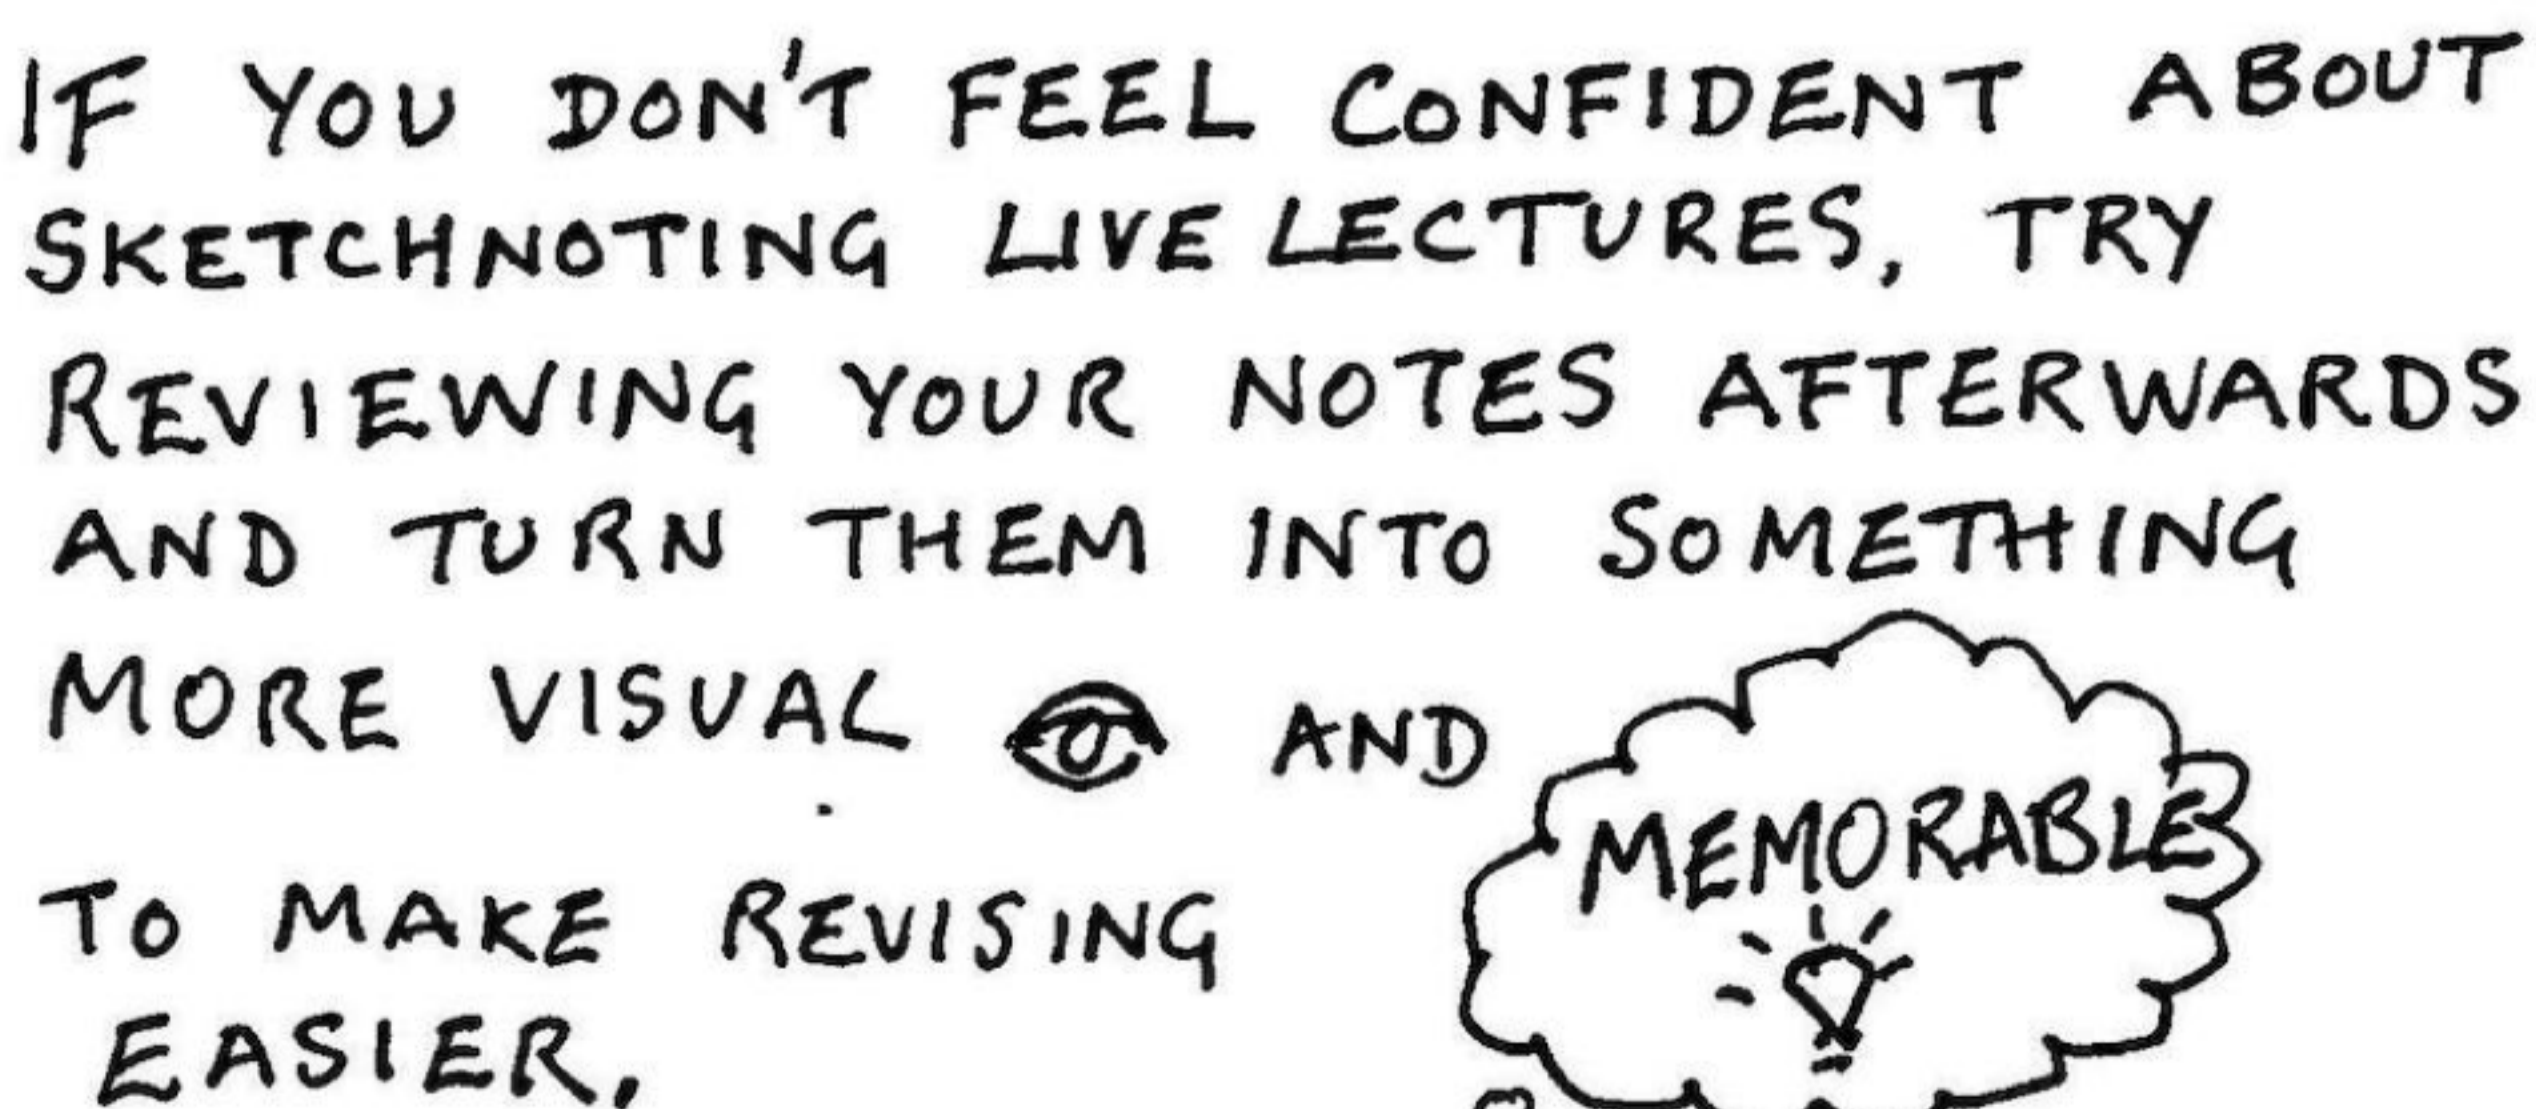 IF YOU DON'T FEEL CONFIDENT ABOUT
SKETCHNOTING LIVE LECTURES, TRY
REVIEWING YOUR NOTES AFTERWARDS
AND TURN THEM INTO SOMETHING
MORE VISUAL AND
MEMORABLE
TO MAKE REVISING
EASIER.